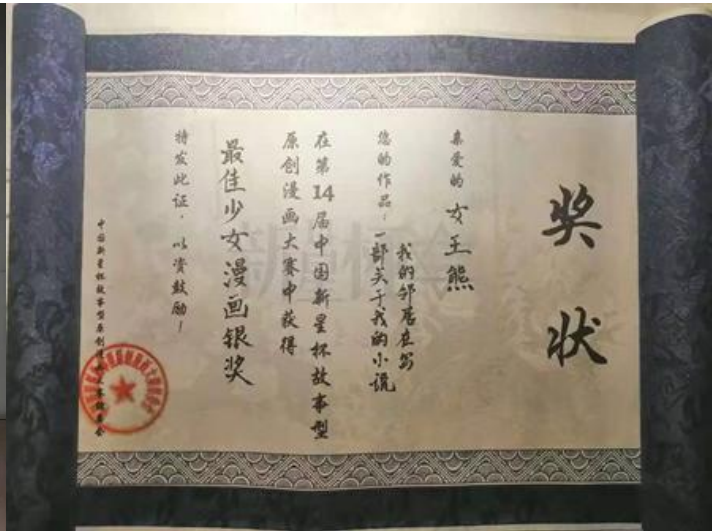 奖状
亲爱的 女王熊
您的作品：一部关于我的小说
我的邻居在写
在第14届中国新星杯故事型
原创漫画大赛中获得
最佳少女漫画银奖
特发此证，以资鼓励！
中国新星杯故事型原创漫画大赛组委会